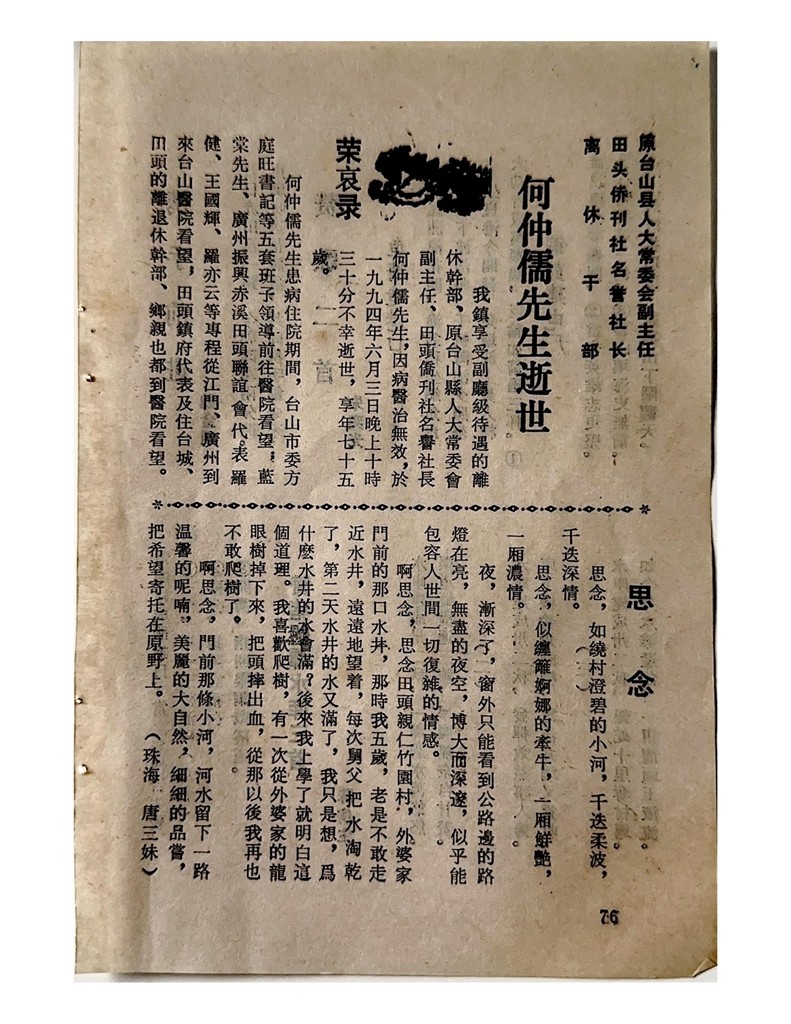 原台山县人大常委会副主任
田头侨刊社名誉社长
离休干部
何仲儒先生逝世
荣哀录
我鎮享受副廳級待遇的離
休幹部、原台山縣人大常委會
副主任、田頭僑刊社名譽社長
何仲儒先生，因病醫治無效，於
一九九四年六月三日晚上十時
三十分不幸逝世，享年七十五
歲。
何仲儒先生患病住院期間，台山市委方
庭旺書記等五套班子領導前往醫院看望，藍
棠先生、廣州振興赤溪田頭聯誼會代表羅
健、王國輝、羅亦云等專程從江門、廣州到
來台山醫院看望，田頭鎮府代表及住台城、
田頭的離退休幹部、鄉親也都到醫院看望。
思念
思念，如繞村澄碧的小河，千迭柔波，
千迭深情。
思念，似纏籬婀娜的牽牛，一厢鮮艷，
一厢濃情。
夜，漸深了，窗外只能看到公路邊的路
燈在亮，無盡的夜空，博大而深邃，似乎能
包容人世間一切復雜的情感。
啊思念，思念田頭親仁竹園村，外婆家
門前的那口水井，那時我五歲，老是不敢走
近水井，遠遠地望着，每次舅父把水淘乾
了，第二天水井的水又滿了，我只是想，爲
什麽水井的水會滿？後來我上學了就明白這
個道理。我喜歡爬樹，有一次從外婆家的龍
眼樹掉下來，把頭摔出血，從那以後我再也
不敢爬樹了。
啊思念，門前那條小河，河水留下一路
溫馨的呢喃，美麗的大自然，細細的品嘗，
把希望寄托在原野上。（珠海 唐三妹）
76